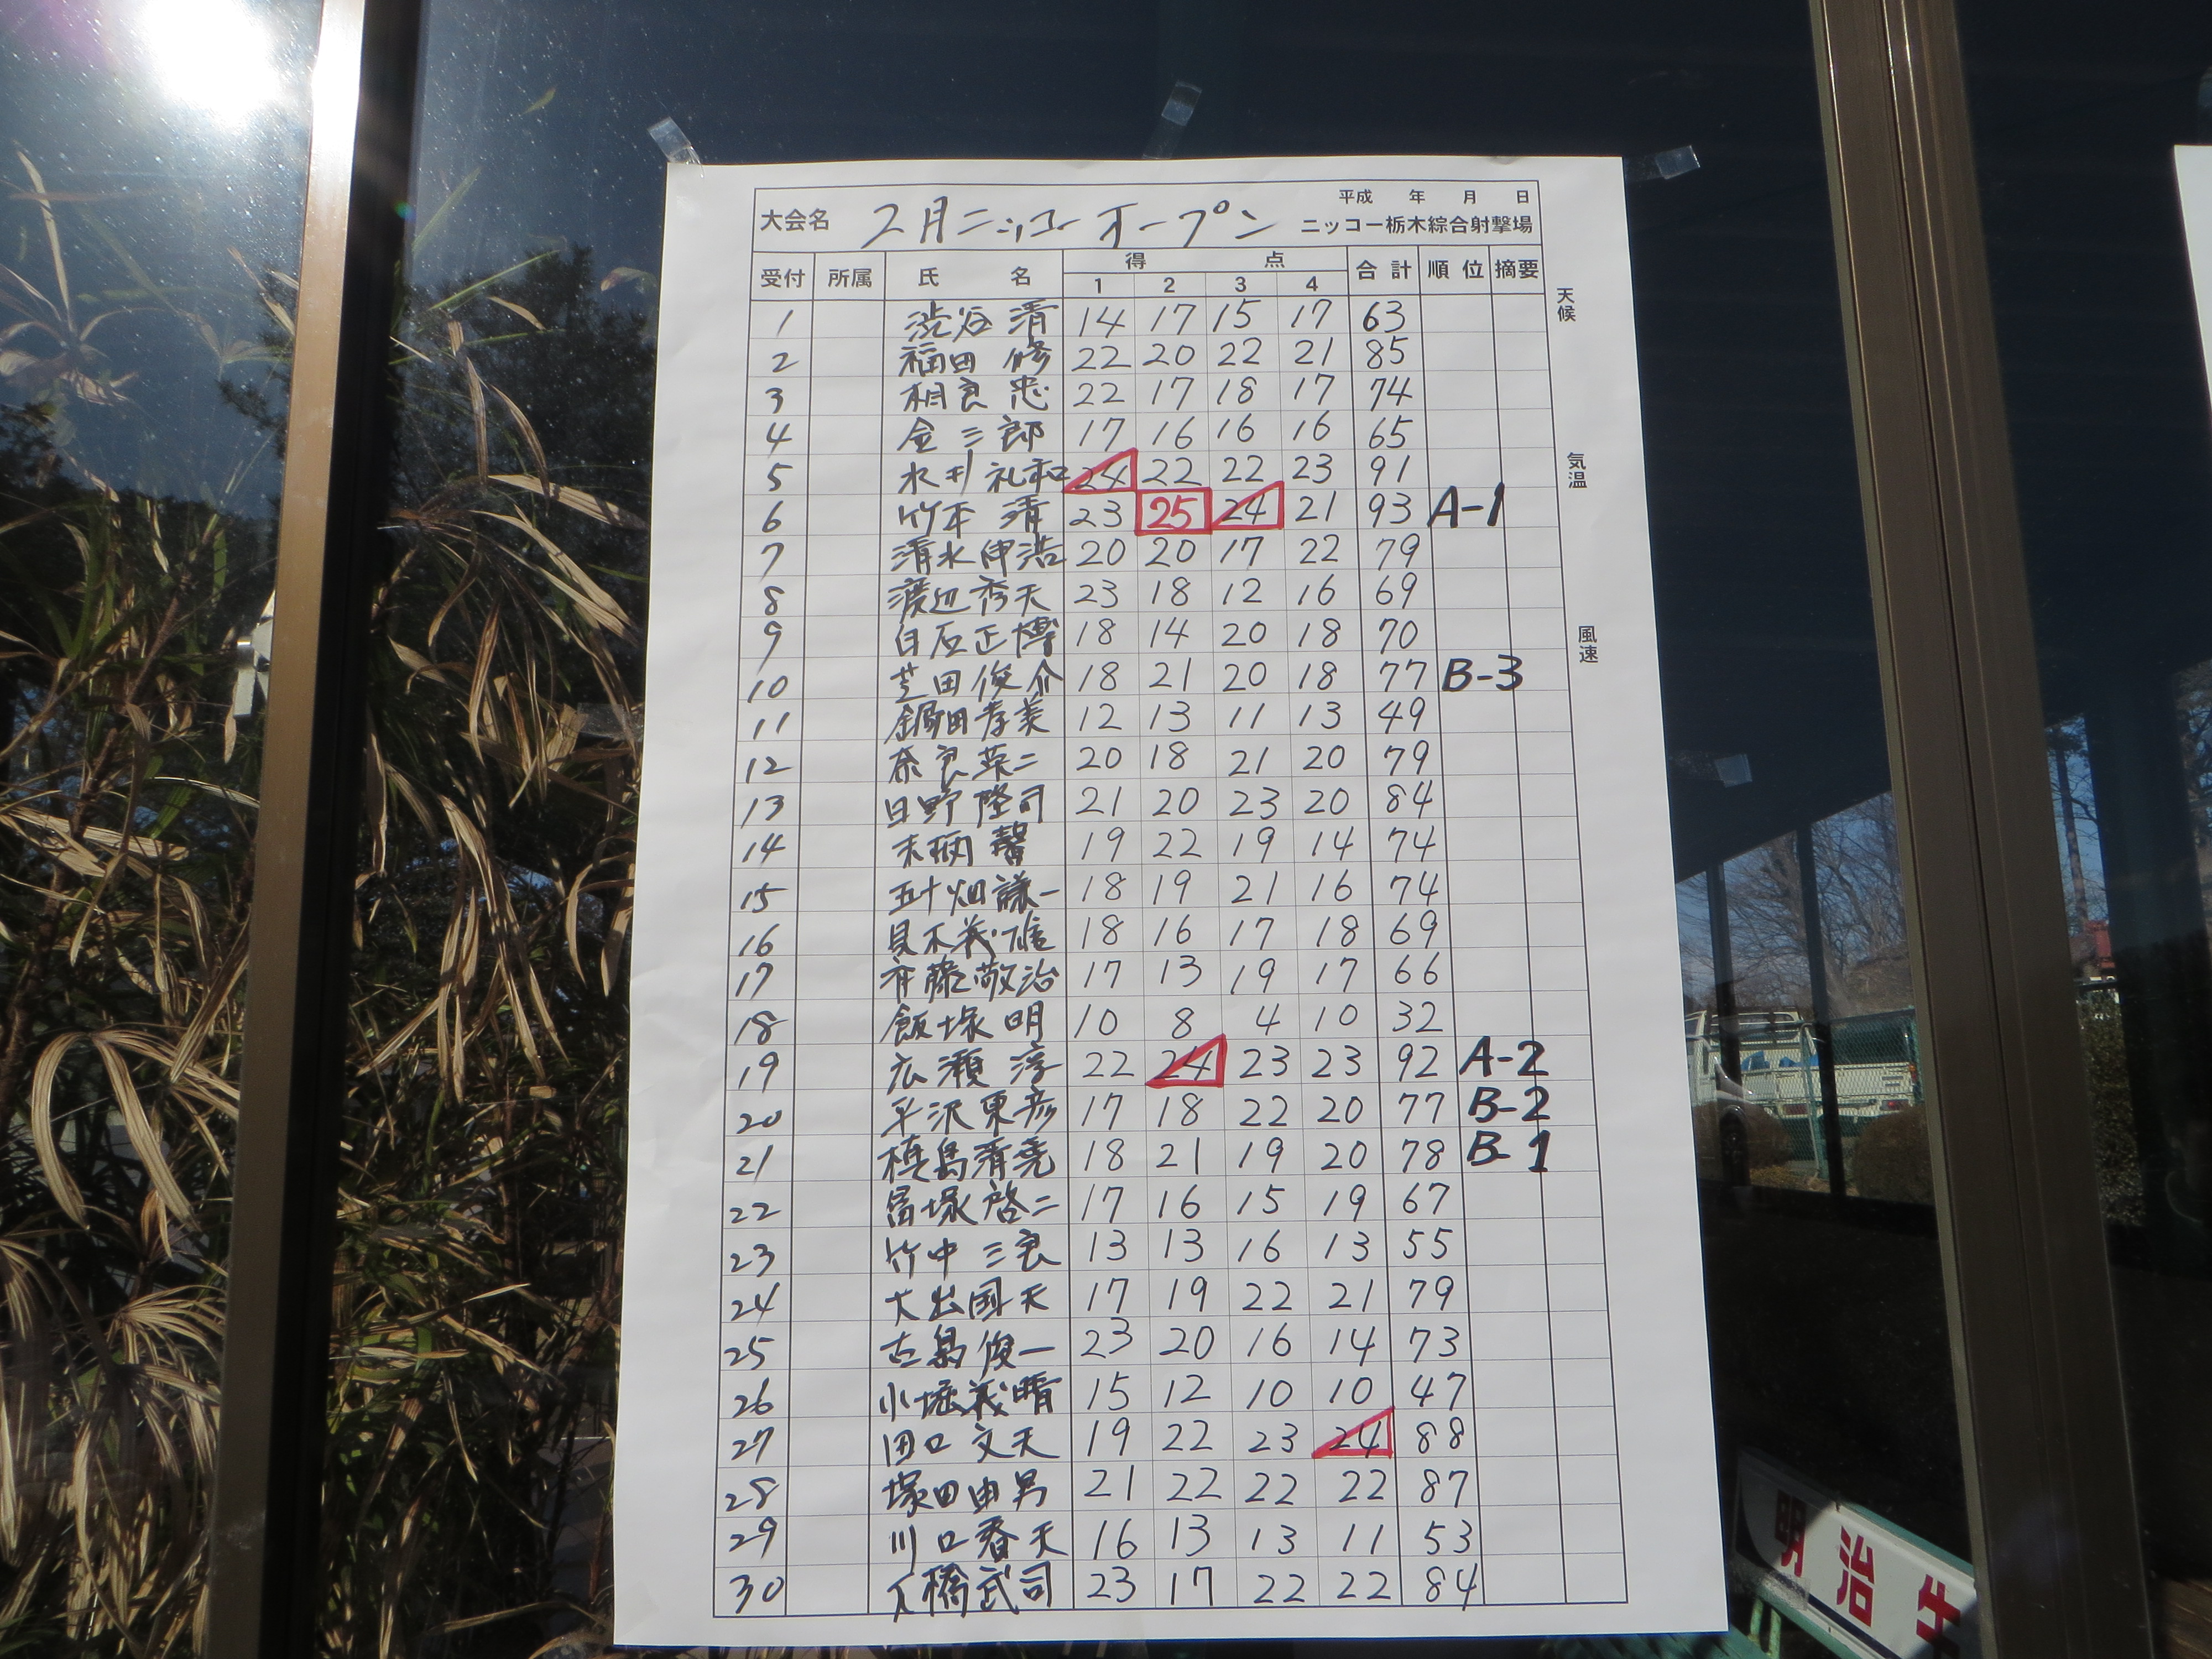 平成 年 月 日
大会名 2月ニッコーオープン ニッコー栃木綜合射撃場
受付 所属 氏 名 得 点 合計 順位 摘要
1 2 3 4
天候
気温
風速
1 渋谷 清 14 17 15 17 63
2 福田 修 22 20 22 21 85
3 相良 忠 22 17 18 17 74
4 金 三郎 17 16 16 16 65
5 水井 礼和 24 22 22 23 91
6 竹本 清 23 25 24 21 93 A-1
7 清水伸浩 20 20 17 22 79
8 渡辺秀夫 23 18 12 16 69
9 白石正博 18 14 20 18 70
10 芝田俊介 18 21 20 18 77 B-3
11 鍋田孝美 12 13 11 13 49
12 奈良栄二 20 18 21 20 79
13 日野隆司 21 20 23 20 84
14 馨 19 22 19 14 74
15 五十畑謙一 18 19 21 16 74
16 18 16 17 18 69
17 斉藤敬治 17 13 19 17 66
18 飯塚 明 10 8 4 10 32
19 広瀬 淳 22 24 23 23 92 A-2
20 平沢東彦 17 18 22 20 77 B-2
21 槙島清尭 18 21 19 20 78 B-1
22 冨塚啓二 17 16 15 19 67
23 竹中 三良 13 13 16 13 55
24 大出国夫 17 19 22 21 79
25 古島俊一 23 20 16 14 73
26 小堀義晴 15 12 10 10 47
27 田口文夫 19 22 23 24 88
28 塚田由男 21 22 22 22 87
29 川口春夫 16 13 13 11 53
30 大橋武司 23 17 22 22 84
明治